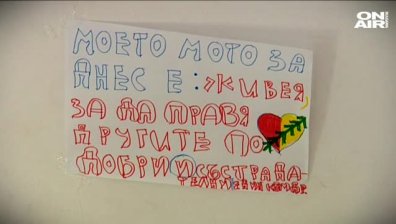 ON
AIR
МОЕТО МОТО ЗА
ДНЕС Е: ЖИВЕЯ
ЗА ДА ПРАВЯ
ДРУГИТЕ ПО
ДОБРИ И СЪСТРАДА-
ТЕЛНИ